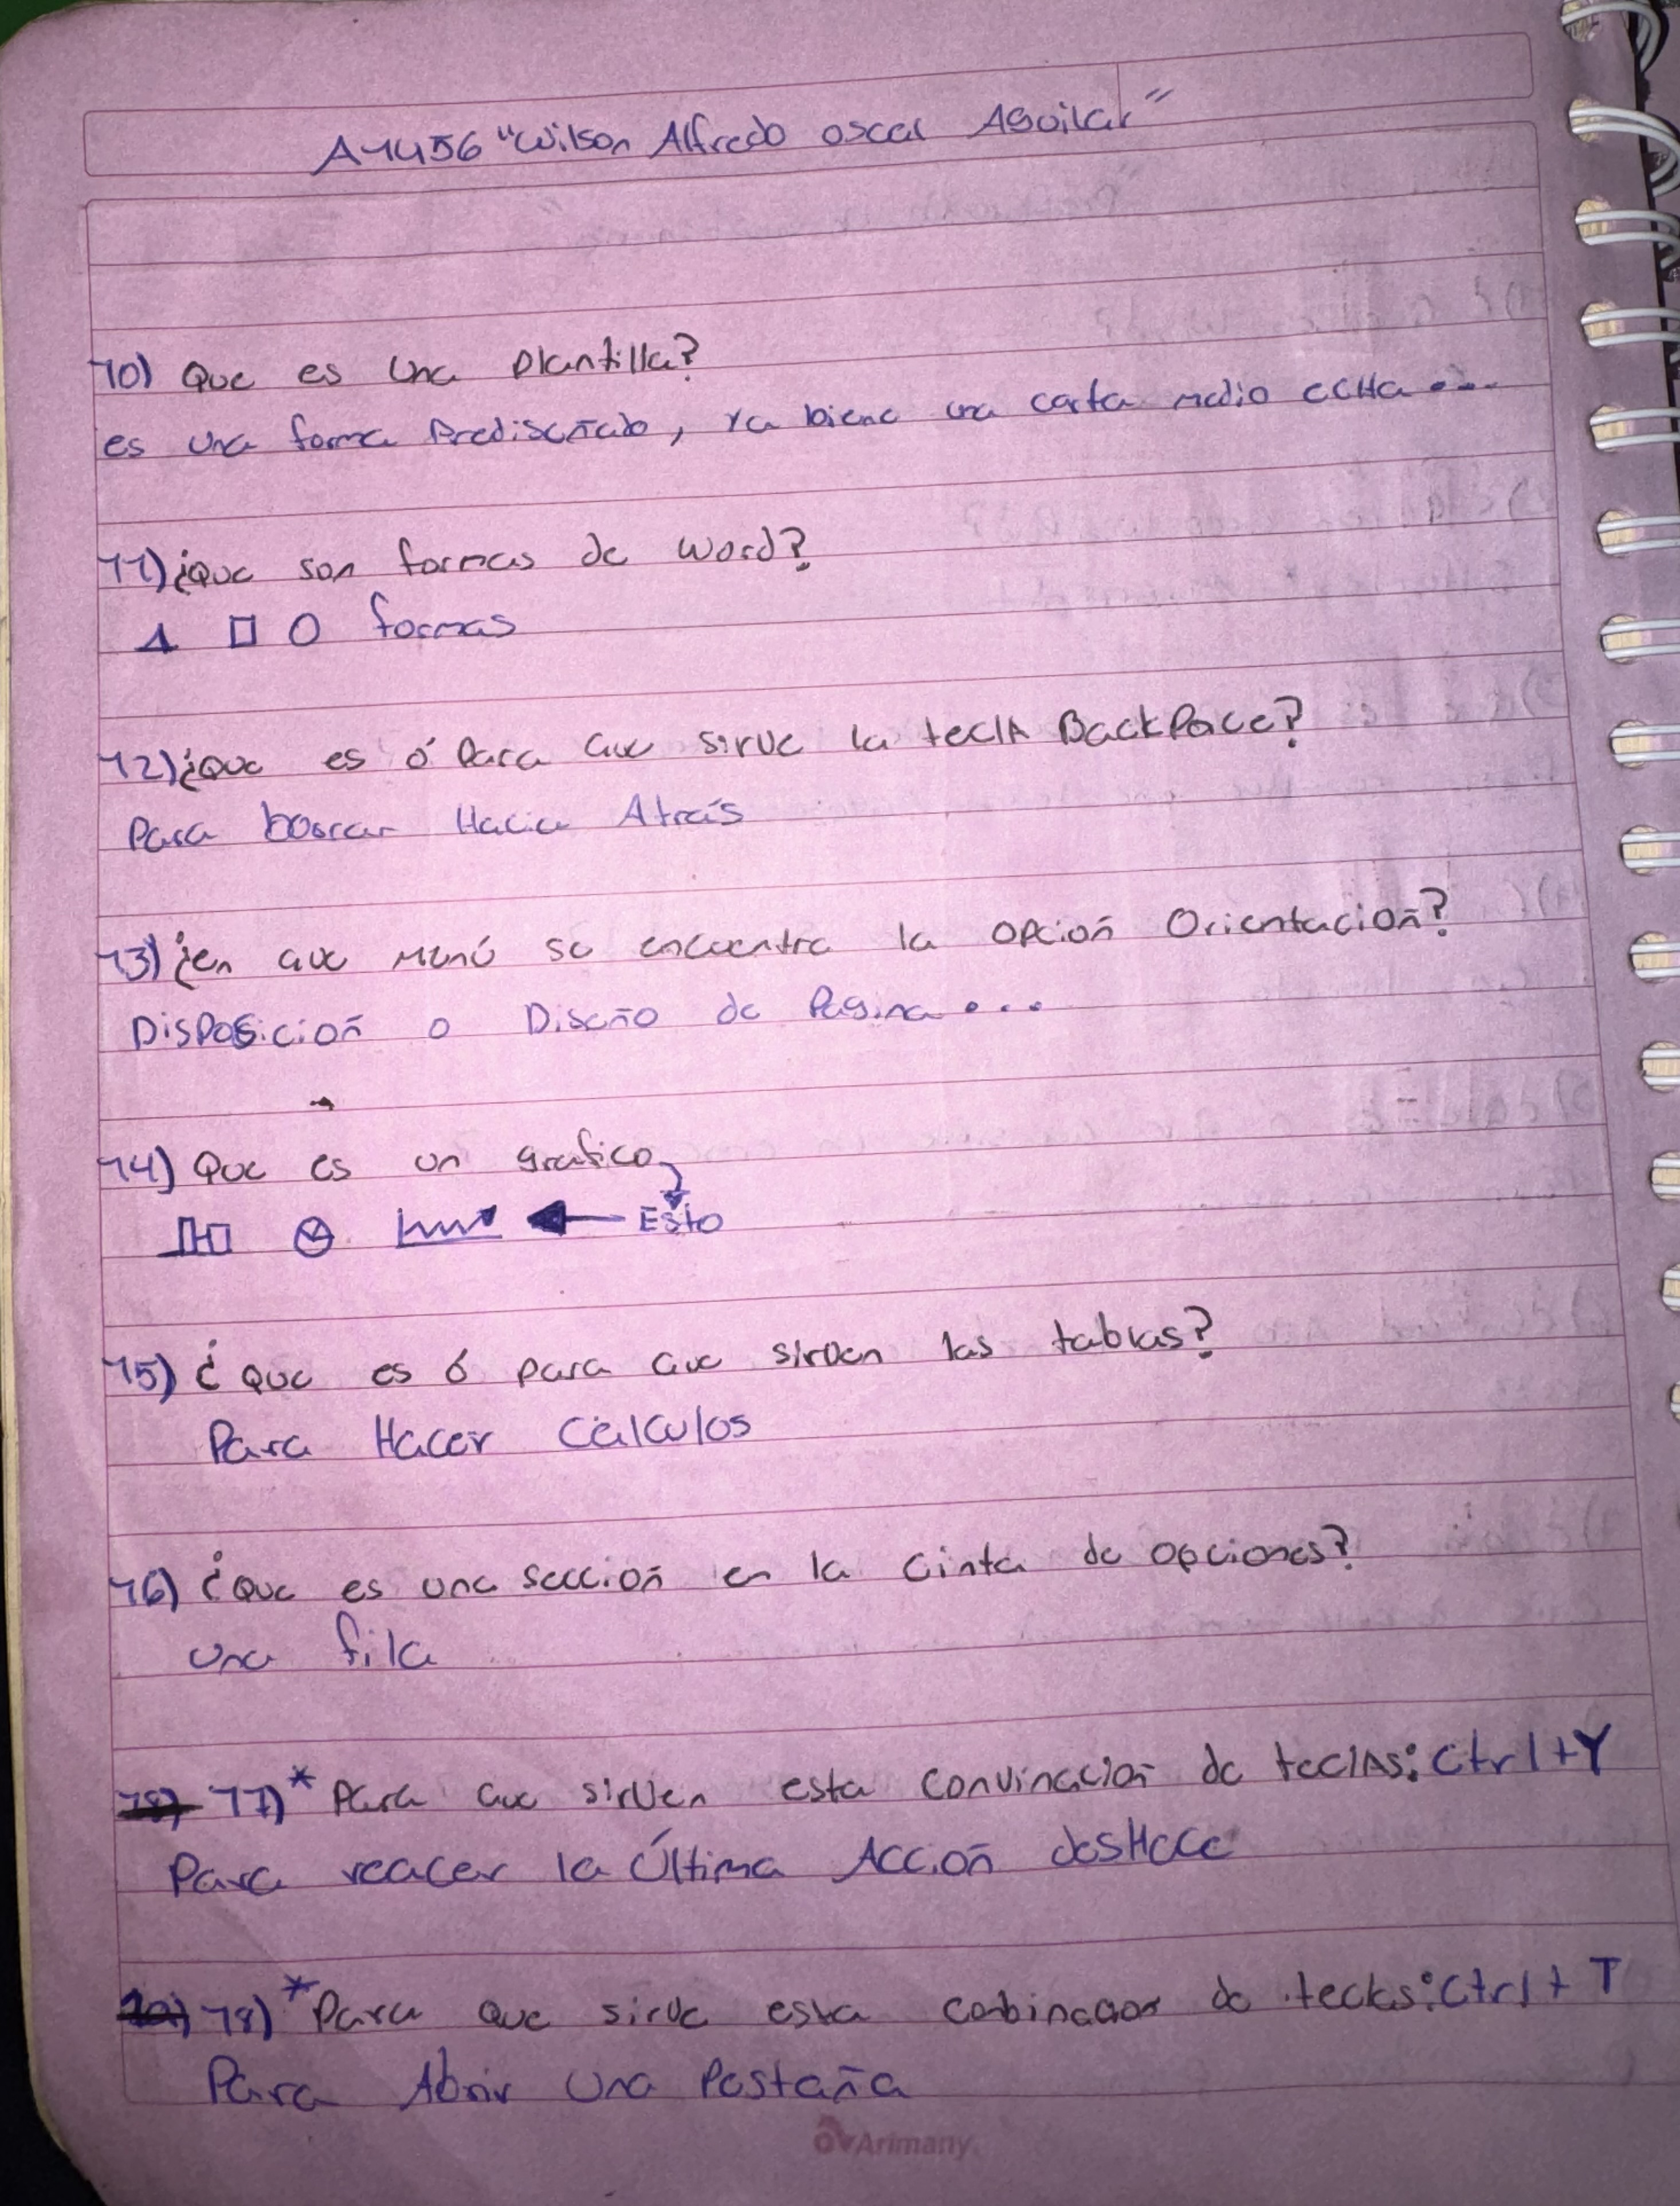 A1456 "Wilson Alfredo oscar Aguilar"
10) Que es una Plantilla?
es una forma Prediseñado, ya biene una carta medio ecHa...
11) ¿Que son formas de word?
formas
12) ¿Que es ó Para que sirve la teclA BackPace?
Para borrar Hacia Atrás
13) ¿en que Menú se encuentra la opción Orientación?
Disposición o Diseño de Pagina...
14) Que es un grafico
Esto
15) ¿Que es ó para que sirven las tablas?
Para Hacer Cálculos
16) ¿Que es una sección en la Cinta de opciones?
una fila
17) * Para que sirven esta convinación de teclAs: Ctrl+Y
Para reacer la Última Acción desHace
18) * Para que sirve esta combinacion de teclas: Ctrl + T
Para Abrir una Pestaña
Arimany